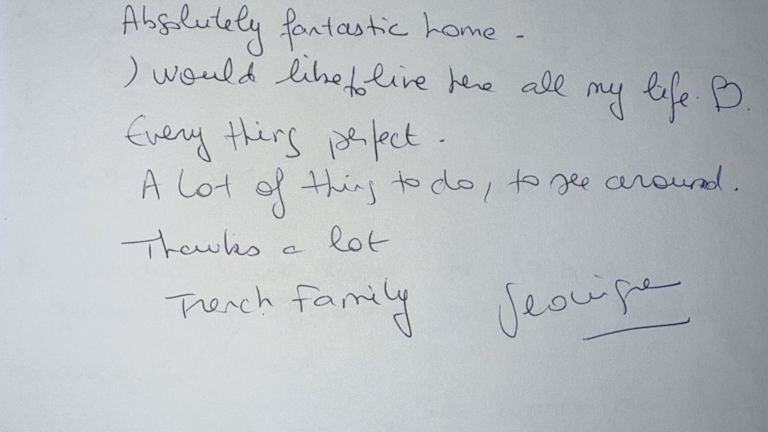 Absolutely fantastic home -
I would like to live here all my life. B.
Every thing perfect.
A lot of thing to do, to see around.
Thanks a lot
French Family